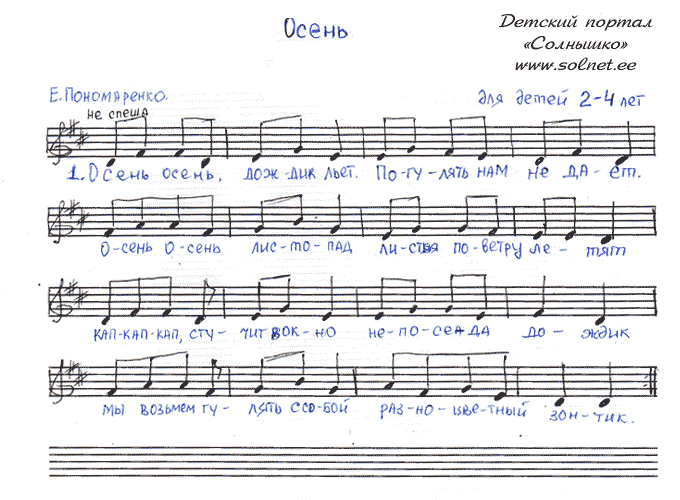 Осень
Детский портал
«Солнышко»
www.solnet.ee
Е.Пономаренко.
для детей 2-4 лет
не спеша
1. Осень осень, дож-дик льет. По-гу-лять нам не да-ёт.
О-сень О-сень лис-то-пад ли-стья по-ветру ле-тят
кап-кап-кап, сту-чит в ок-но не-по-седа до-ждик
мы возьмем гу-лять с со-бой раз-но-цве-тный зон-тик.